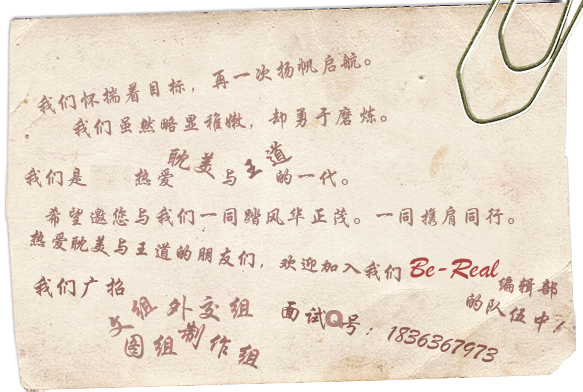 我们怀揣着目标，再一次扬帆启航。
我们虽然略显稚嫩，却勇于磨炼。
我们是 热爱耽美与王道的一代。
希望邀您与我们一同踏风华正茂。一同携肩同行。
热爱耽美与王道的朋友们，欢迎加入我们 Be-Real 编辑部的队伍中！
我们广招
文组 外交组
图组 制作组
面试Q号：1836367973